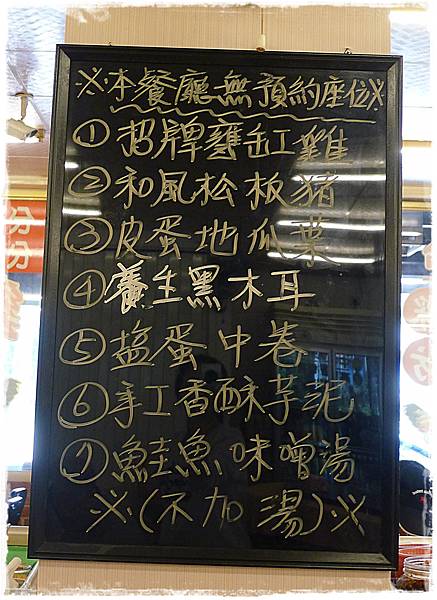 ※本餐廳無預約座位※
①招牌甕缸雞
②和風松板豬
③皮蛋地瓜葉
④養生黑木耳
⑤塩蛋中卷
⑥手工香酥芋泥
⑦鮭魚味噌湯
※(不加湯)※